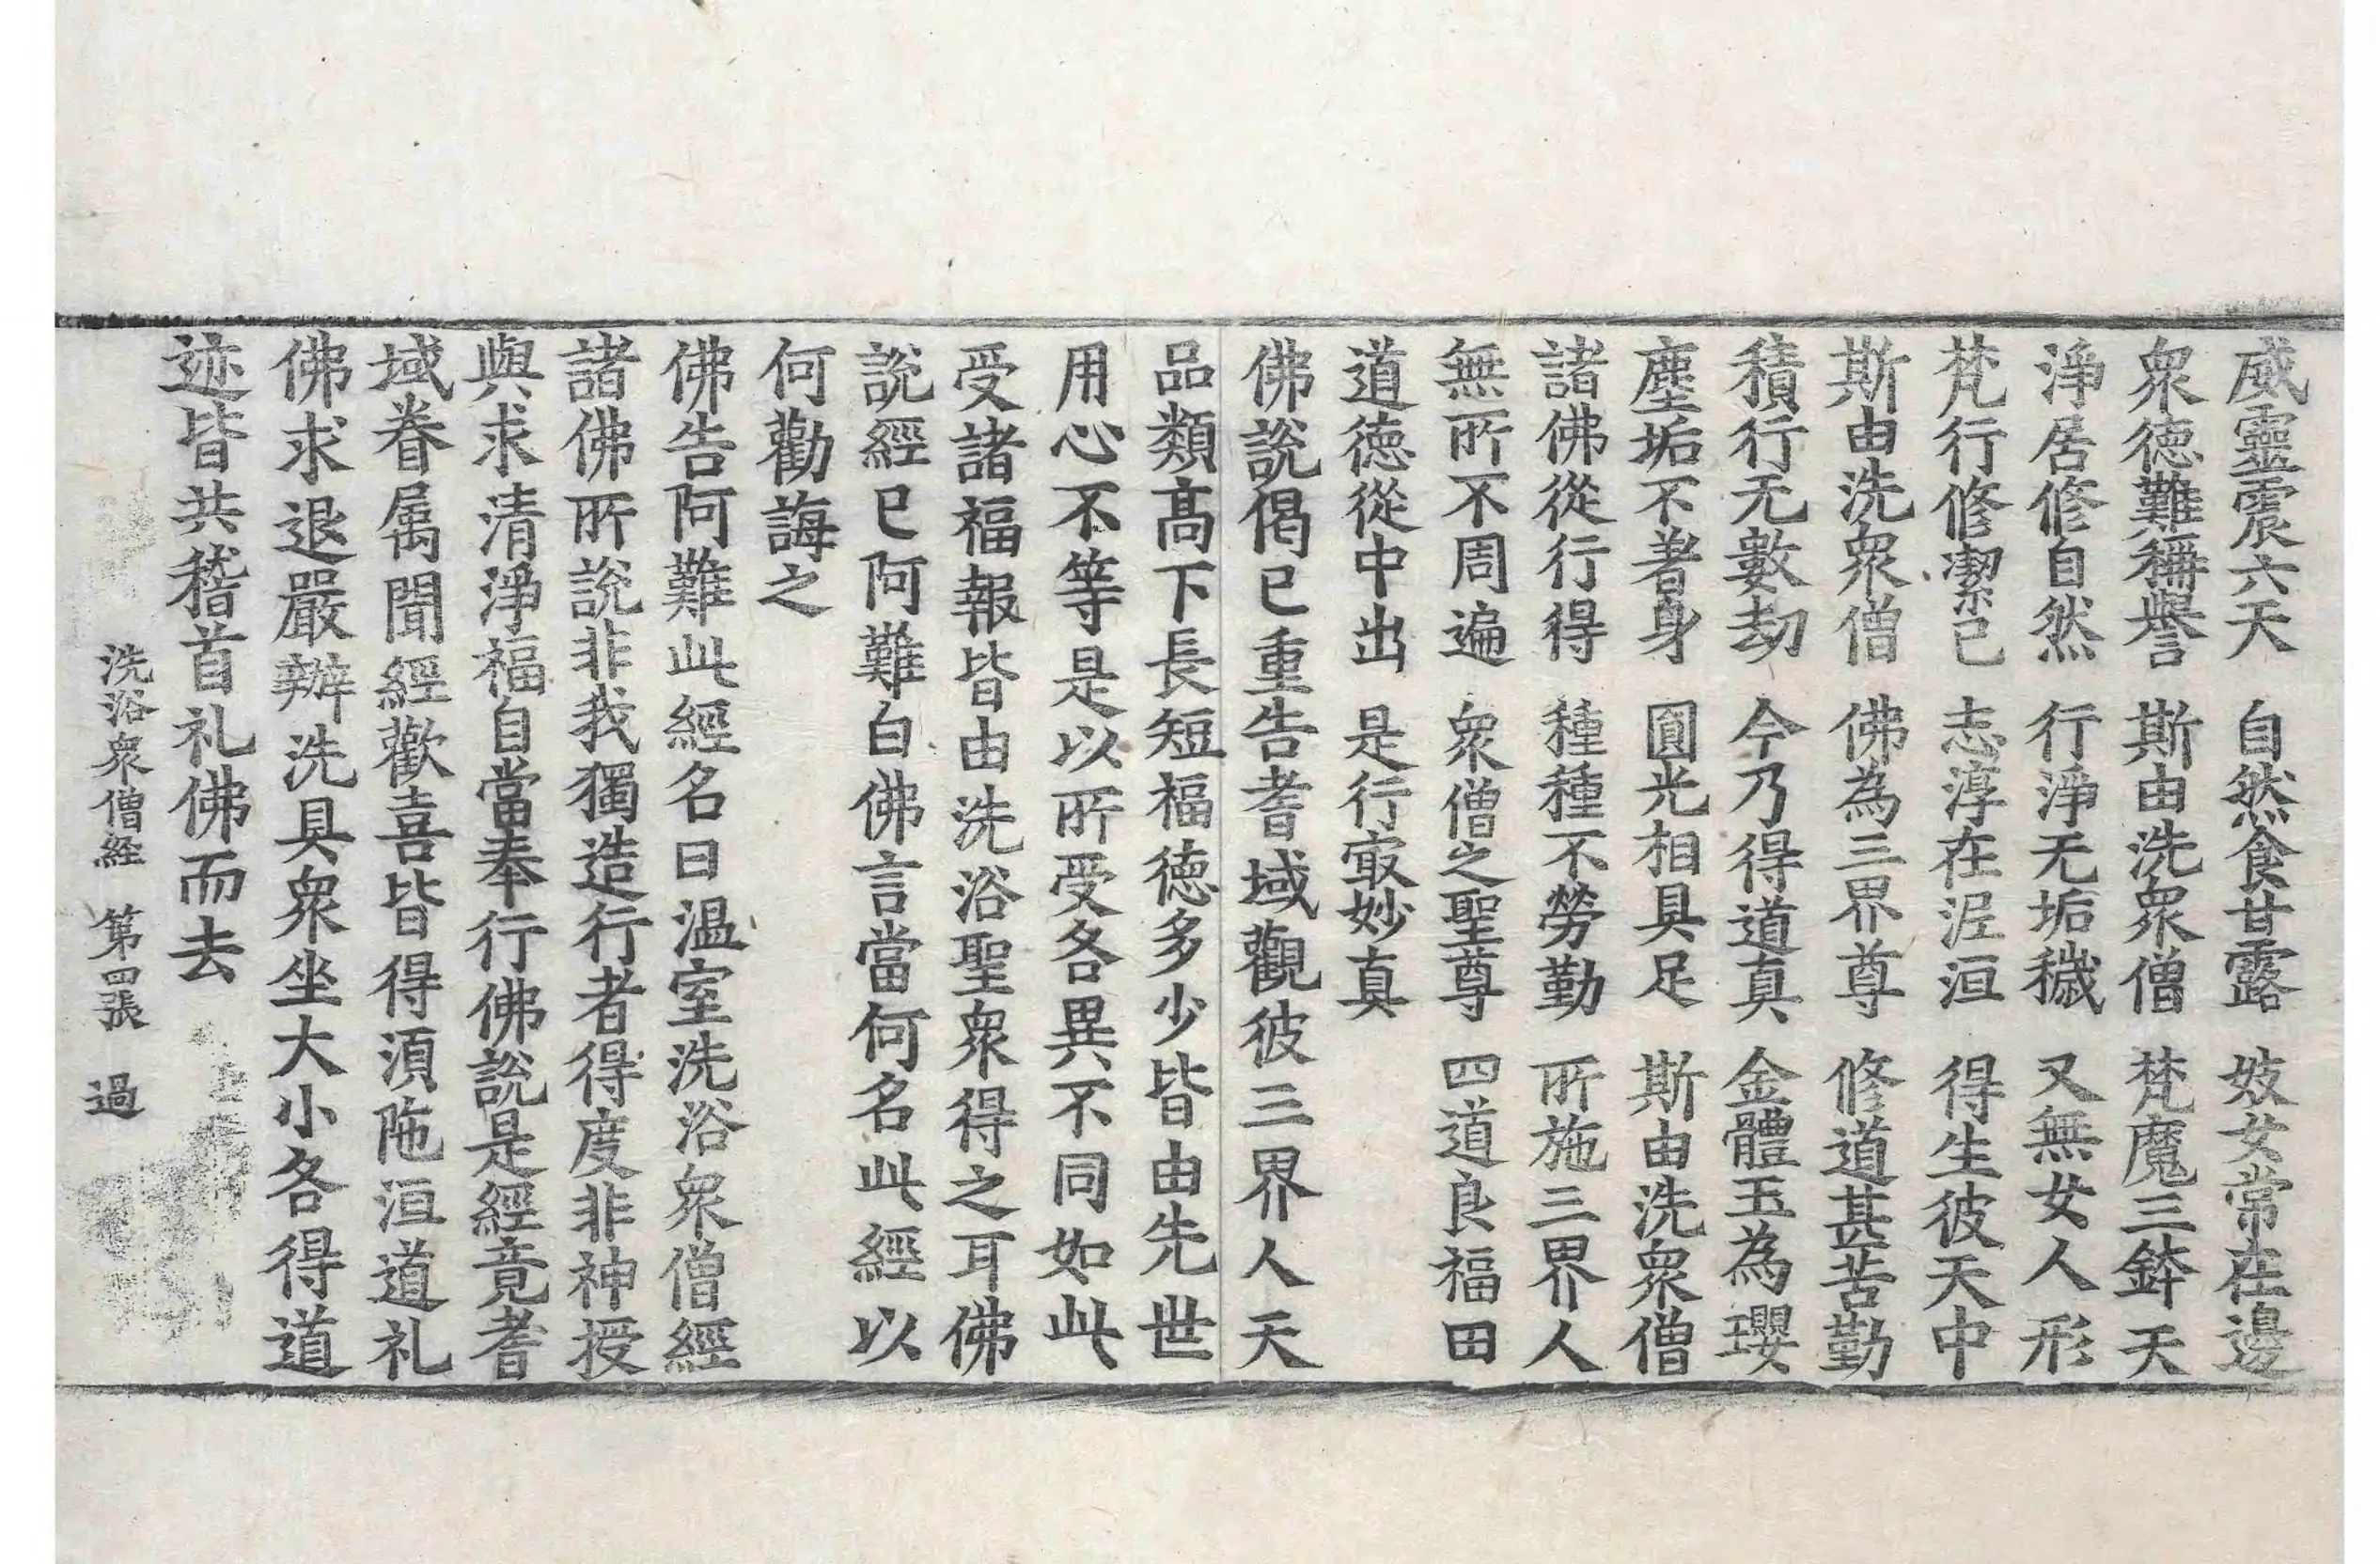 威靈震六天　自然食甘露　妓女常在邊
衆徳難稱譽　斯由洗衆僧　梵魔三鉢天
淨居修自然　行淨无垢穢　又無女人形
梵行修潔己　志淳在泥洹　得生彼天中
斯由洗衆僧　佛為三界尊　修道甚苦勤
積行无數劫　今乃得道真　金體玉為瓔
塵垢不著身　圓光相具足　斯由洗衆僧
諸佛從行得　種種不勞勤　所施三界人
無所不周遍　衆僧之聖尊　四道良福田
道徳從中出　是行㝡妙真
佛說偈已重告耆域觀彼三界人天
品類髙下長短福徳多少皆由先世
用心不等是以所受各異不同如此
受諸福報皆由洗浴聖衆得之耳佛
說經已阿難白佛言當何名此經以
何勸誨之
佛告阿難此經名曰温室洗浴衆僧經
諸佛所說非我獨造行者得度非神授
與求清淨福自當奉行佛說是經竟耆
域眷属聞經歡喜皆得湏陁洹道礼
佛求退嚴辦洗具衆坐大小各得道
迹皆共稽首礼佛而去
洗浴衆僧経　第四張　過